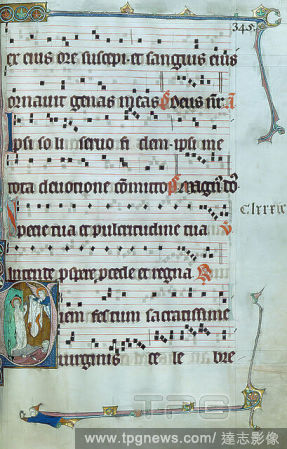 345
ex eius ore suscepi et sanguis eius
ornauit genas meas
ipsi so li seruo fi dem ipsi me
tota deuotione cōmitto
Specie tua et pulcritudine tua
intende prospere procede et regna
Diem festum sacratissime
uirginis ce le bre
TPG
www.tpgnews.com/達志影像